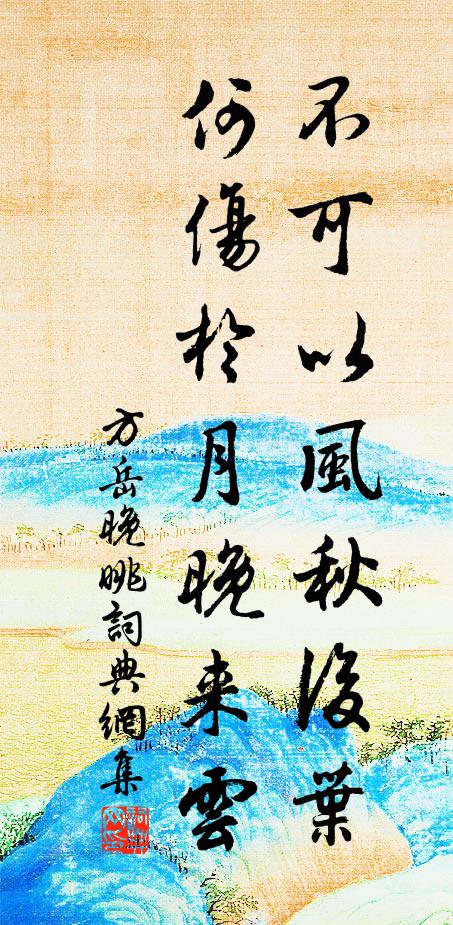 不可以風秋後葉
何傷於月晚來雲
方岳晚眺詞典網集